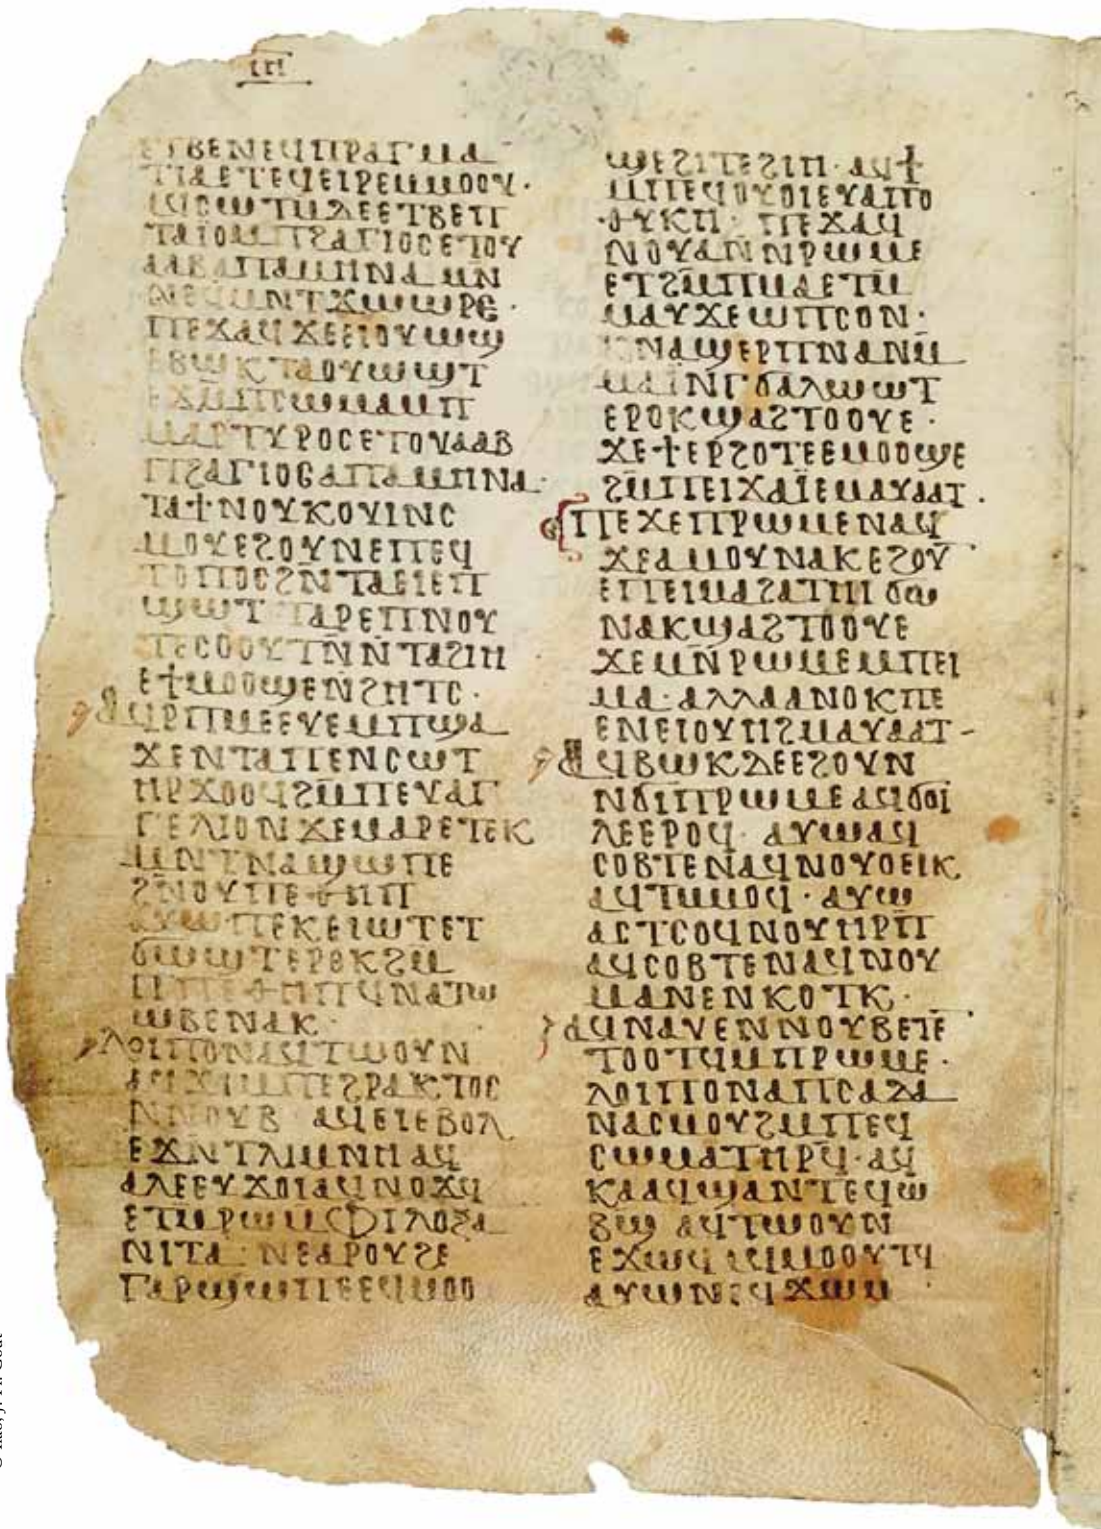 ⲓⲏ
ⲉⲧⲃⲉⲛⲉϥⲡⲣⲁⲅⲙⲁ
ⲧⲓⲁⲉⲧⲉϥⲉⲓⲣⲉⲙⲙⲟⲟⲩ·
ⲁϥⲥⲱⲧⲙⲇⲉⲉⲧⲃⲉⲡ
ⲧⲁⲓⲟⲙⲡϩⲁⲅⲓⲟⲥⲉⲧⲟⲩ
ⲁⲁⲃⲁⲡⲁⲙⲏⲛⲁⲙⲛ
ⲛⲉϥⲙⲛⲧϫⲱⲱⲣⲉ·
ⲡⲉϫⲁϥϫⲉⲉⲓⲟⲩⲱϣ
ⲉⲃⲱⲕⲧⲁⲟⲩⲱϣⲧ
ⲉϫⲙⲡⲥⲱⲙⲁⲙⲡ
ⲙⲁⲣⲧⲩⲣⲟⲥⲉⲧⲟⲩⲁⲁⲃ
ⲡϩⲁⲅⲓⲟⲥⲁⲡⲁⲙⲏⲛⲁ·
ⲧⲁϯⲛⲟⲩⲕⲟⲩⲓⲛⲥ
ⲙⲟⲩⲉϩⲟⲩⲛⲉⲡⲉϥ
ⲧⲟⲡⲟⲥϩⲛⲧⲁⲉⲓⲉⲡ
ϣⲱⲧⲧⲁⲣⲉⲡⲛⲟⲩ
ⲧⲉⲥⲟⲟⲩⲧⲛ̄ⲛ̄ⲧⲁϩⲓⲏ
ⲉϯⲙⲟⲟϣⲉⲛϩⲏⲧⲥ·
ⲁϥⲣⲡⲙⲉⲉⲩⲉⲙⲡϣⲁ
ϫⲉⲛⲧⲁⲡⲉⲛⲥⲱⲧ
ⲏⲣϫⲟⲟϥϩⲙ̄ⲡⲉⲩⲁⲅ
ⲅⲉⲗⲓⲟⲛϫⲉⲙⲁⲣⲉⲧⲉⲕ
ⲙⲛⲧⲛⲁϣⲱⲡⲉ
ϩⲛⲟⲩⲡⲉⲑⲏⲡ
ⲁⲩⲱⲡⲉⲕⲉⲓⲱⲧⲉⲧ
ϭⲱϣⲧⲉⲣⲟⲕϩⲙ
ⲡⲡⲉⲑⲏⲡϥⲛⲁⲧⲱ
ⲱⲃⲉⲛⲁⲕ·
ⲗⲟⲓⲡⲟⲛⲁϥⲧⲱⲟⲩⲛ
ⲁϥϫⲓⲙⲡⲉϩⲣⲁⲕⲧⲟⲥ
ⲛⲛⲟⲩⲃ ⲁϥⲉⲓⲉⲃⲟⲗ
ⲉϫⲛ̄ⲧⲗⲓⲙⲛⲏⲁϥ
ⲁⲗⲉⲉⲩϫⲟⲓⲁϥⲛⲟϫϥ
ⲉⲧⲉⲙⲣⲱⲙⲫⲓⲗⲟⲝⲁ
ⲛⲓⲧⲁ· ⲛⲉⲁⲣⲟⲩϩⲉ
ⲅⲁⲣϣⲱⲡⲉⲉϥⲙⲟⲟ
ϣⲉϩⲓⲧⲉϩⲓⲏ· ⲁϥϯ
ⲙⲡⲉϥⲟⲩⲟⲓⲉⲩⲁⲡⲟ
ⲑⲩⲕⲏ· ⲡⲉϫⲁϥ
ⲛⲟⲩⲁⲛⲛⲣⲱⲙⲉ
ⲉⲧϩⲙ̄ⲡⲙⲁⲉⲧⲙ̄
ⲙⲁⲩϫⲉⲱⲡⲥⲟⲛ·
ⲕⲛⲁϣⲉⲣⲡⲛⲁⲛⲙ̄
ⲙⲁⲓ̈ⲛⲅϭⲁⲗⲱⲱⲧ
ⲉⲣⲟⲕϣⲁϩⲧⲟⲟⲩⲉ·
ϫⲉϯⲉⲣϩⲟⲧⲉⲉⲙⲟⲟϣⲉ
ϩⲙ̄ⲡⲉⲓϫⲁⲓ̈ⲉⲙⲁⲩⲁⲁⲧ·
ⲡⲉϫⲉⲡⲣⲱⲙⲉⲛⲁϥ
ϫⲉⲁⲙⲟⲩⲛⲁⲕⲉϩⲟⲩ
ⲉⲡⲉⲓⲙⲁϩⲁⲧⲏⲓϭⲱ
ⲛⲁⲕϣⲁϩⲧⲟⲟⲩⲉ
ϫⲉⲙⲛ̄ⲣⲱⲙⲉⲙⲡⲉⲓ
ⲙⲁ· ⲁⲗⲗⲁⲁⲛⲟⲕⲡⲉ
ⲉⲛⲉⲓⲟⲩⲏϩⲙⲁⲩⲁⲁⲧ-
ⲁϥⲃⲱⲕⲇⲉⲉϩⲟⲩⲛ
ⲛϭⲓⲡⲣⲱⲙⲉⲁϥϭⲟⲓ̈
ⲗⲉⲉⲣⲟϥ· ⲁⲩⲱⲁϥ
ⲥⲟⲃⲧⲉⲛⲁϥⲛⲟⲩⲟⲉⲓⲕ
ⲁϥⲧⲙⲙⲟϥ· ⲁⲩⲱ
ⲁⲥⲧⲥⲟϥⲛⲟⲩⲏⲣⲡ̄
ⲁϥⲥⲟⲃⲧⲉⲛⲁϥⲛⲟⲩ
ⲙⲁⲛⲉⲛⲕⲟⲧⲕ·
ⲁϥⲛⲁⲩⲉⲛⲛⲟⲩⲃⲉⲧⲉ
ⲧⲟⲟⲧϥⲙⲡⲣⲱⲙⲉ·
ⲗⲟⲓⲡⲟⲛⲁⲡⲥⲁⲇⲁ
ⲛⲁⲥⲙⲟⲩϩⲙⲡⲉϥ
ⲥⲱⲙⲁⲧⲏⲣϥ̄·ⲁϥ
ⲕⲁⲁϥϣⲁⲛⲧⲉϥⲱ
ⲃϣ ⲁϥⲧⲱⲟⲩⲛ
ⲉϫⲱϥ ⲁϥⲙⲟⲟⲩⲧϥ
ⲁⲩⲱⲛⲉϥϫⲱⲙ